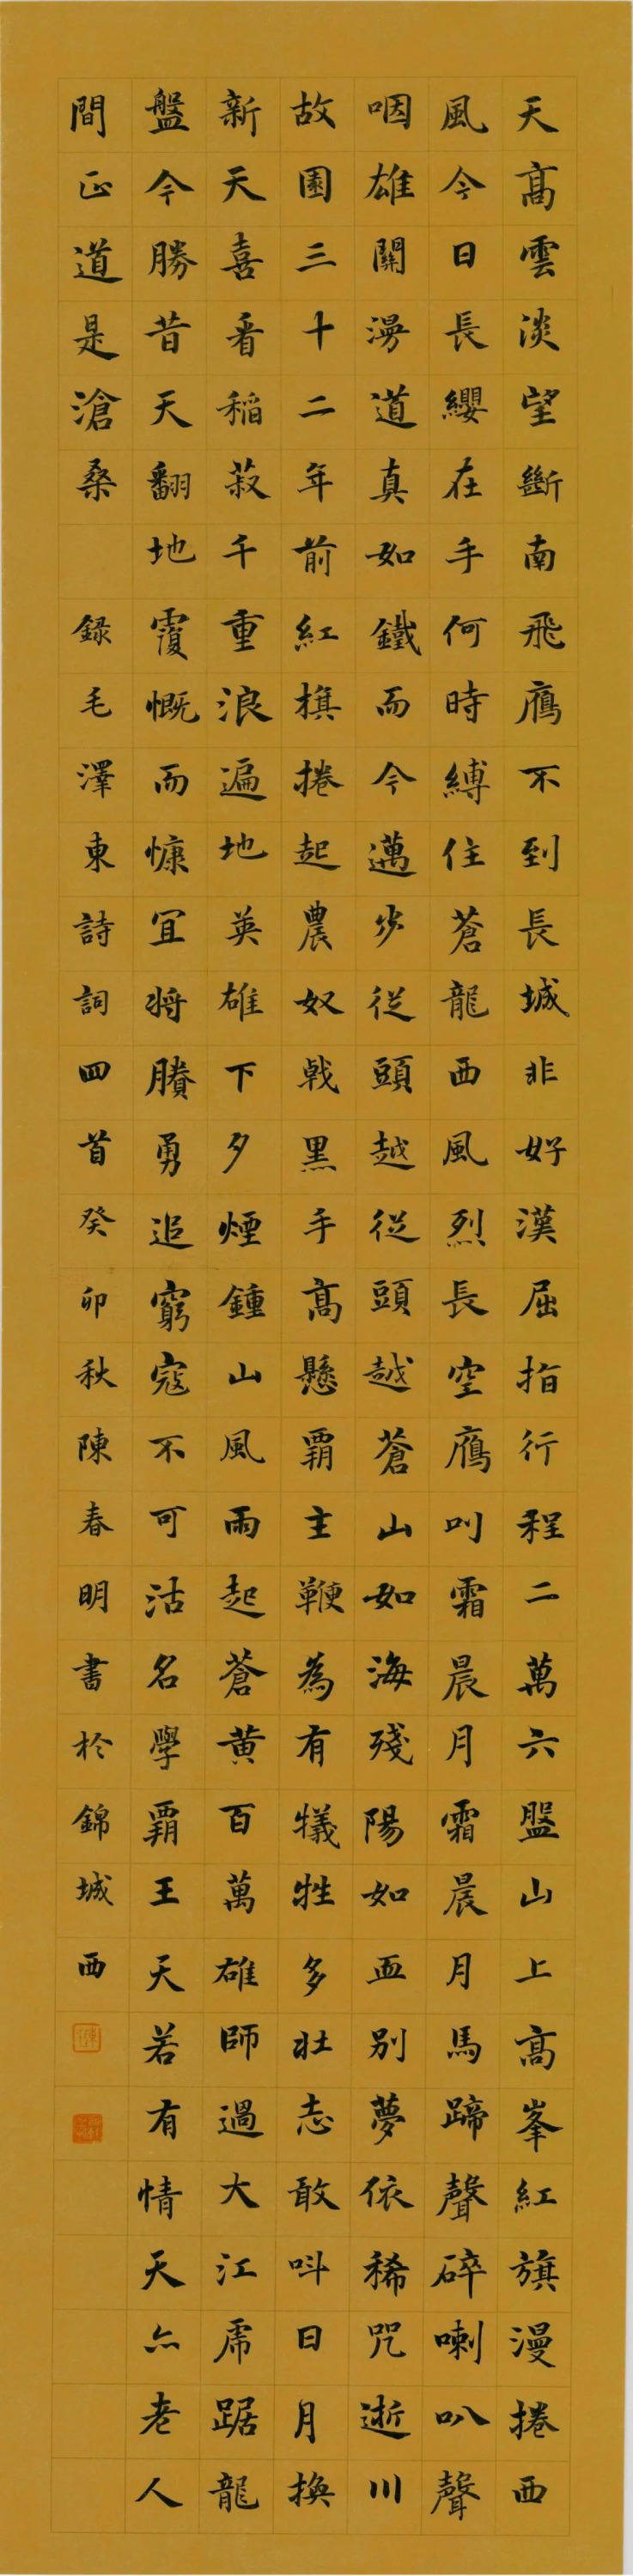 天高雲淡望斷南飛鴈不到長城非好漢屈指行程二萬六盤山上高峯紅旗漫捲西
風今日長纓在手何時縛住蒼龍西風烈長空鴈叫霜晨月霜晨月馬蹄聲碎喇叭聲
咽雄關漫道真如鐵而今邁步從頭越從頭越蒼山如海殘陽如血別夢依稀咒逝川
故園三十二年前紅旗捲起農奴戟黑手高懸霸主鞭為有犧牲多壯志敢叫日月換
新天喜看稻菽千重浪遍地英雄下夕煙鍾山風雨起蒼黃百萬雄師過大江虎踞龍
盤今勝昔天翻地覆慨而慷宜將賸勇追窮寇不可沽名學霸王天若有情天亦老人
間正道是滄桑 錄毛澤東詩詞四首癸卯秋陳春明書於錦城西